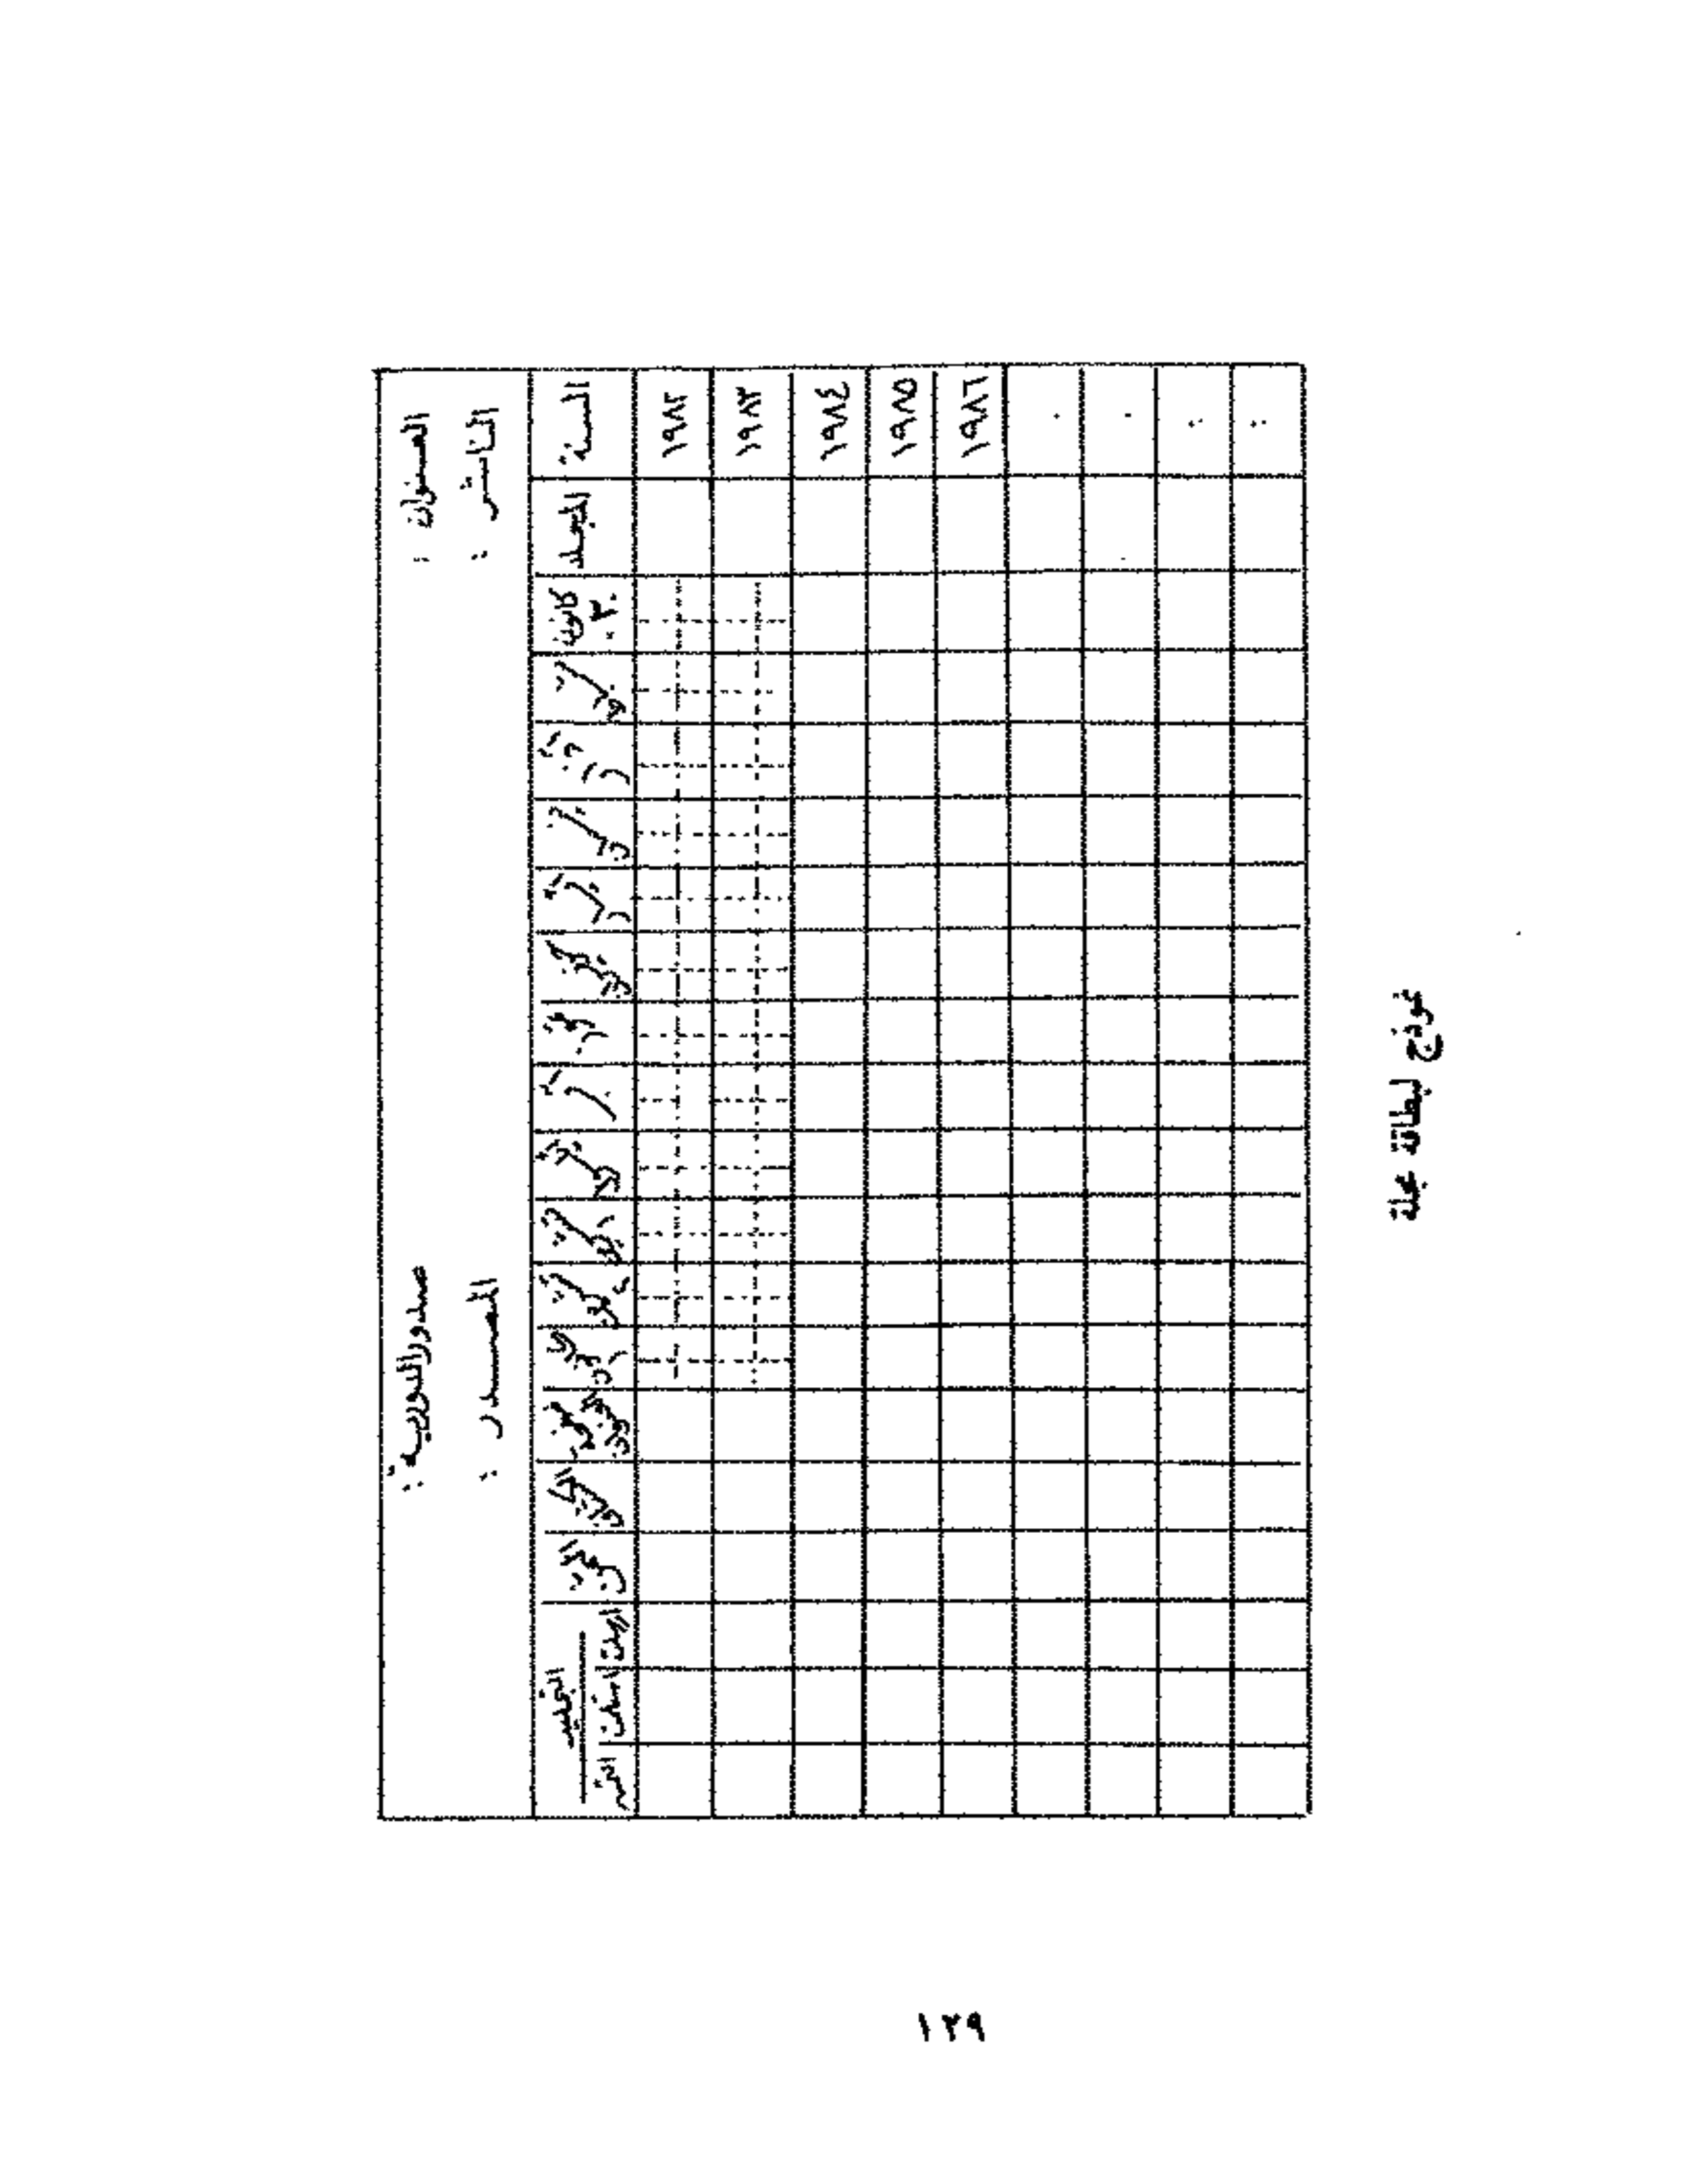 العنوان :
صدور الدورية :
الناشر :
المصدر :
السنة
المجلد
كانون ٢
شباط
آذار
نيسان
أيار
حزيران
تموز
آب
أيلول
تشرين ١
تشرين ٢
كانون ١
التجليد
ارسلت
استلمت
١٩٨٢
١٩٨٣
١٩٨٤
١٩٨٥
١٩٨٦
نموذج لبطاقة مجلة
١٢٩